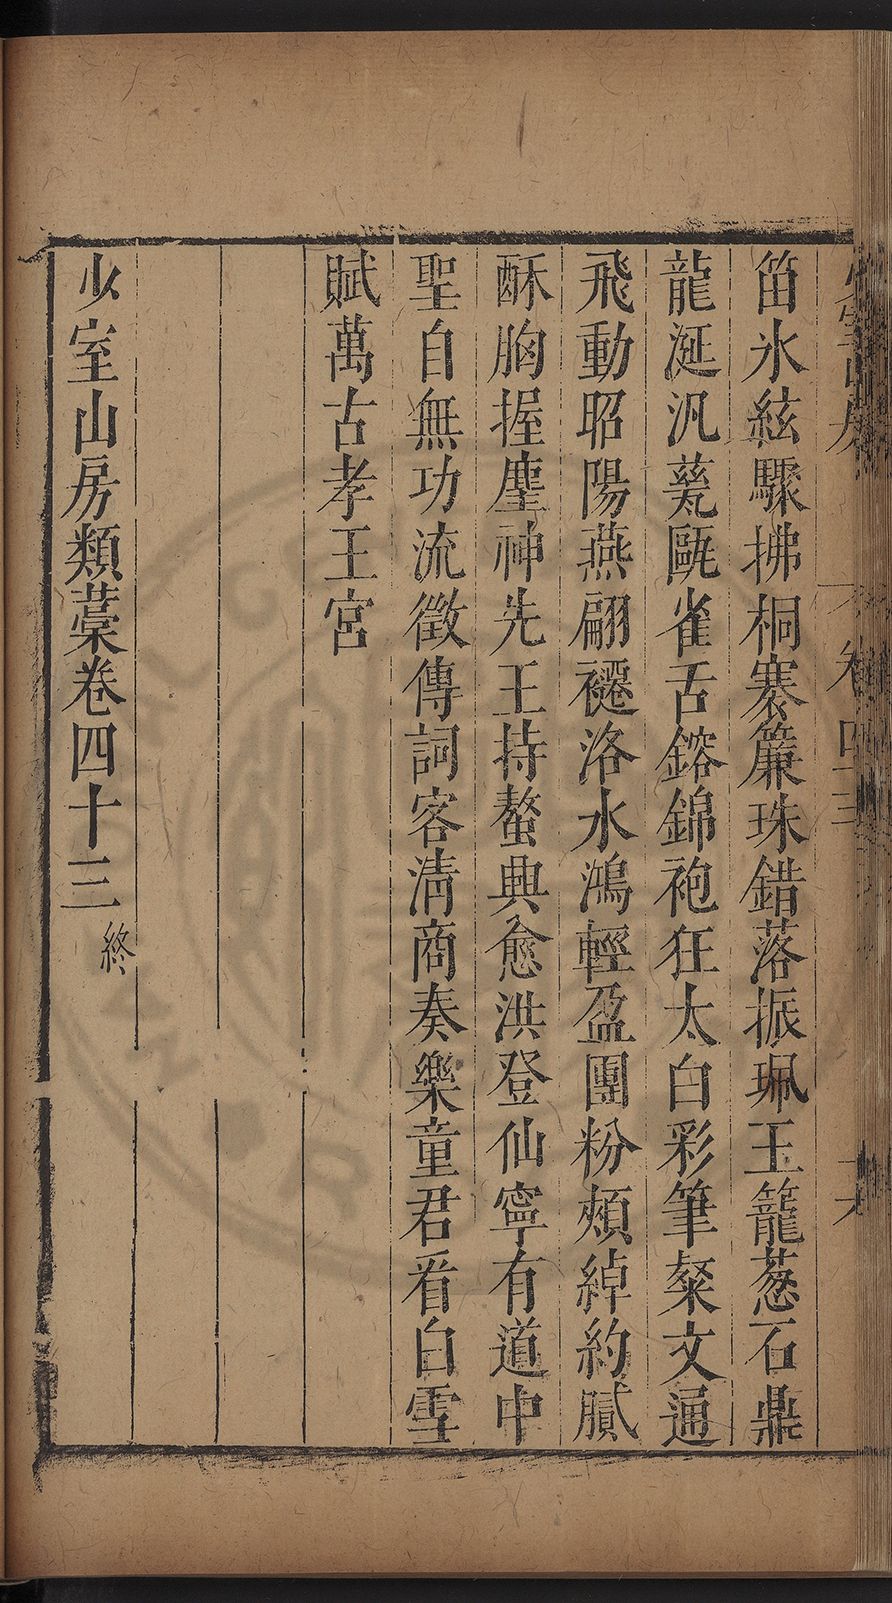 笛氷絃驟拂桐褰簾珠錯落振珮玉籠葱石鼎
龍涎汎甆甌雀舌鎔錦袍狂太白彩筆粲文通
飛動昭陽燕翩褼洛水鴻輕盈團粉頰綽約膩
酥胸握麈神先王持螯興愈洪登仙寧有道中
聖自無功流徵傳詞客清商奏樂童君看白雪
賦萬古孝王宮
少室山房類藁卷四十三 終